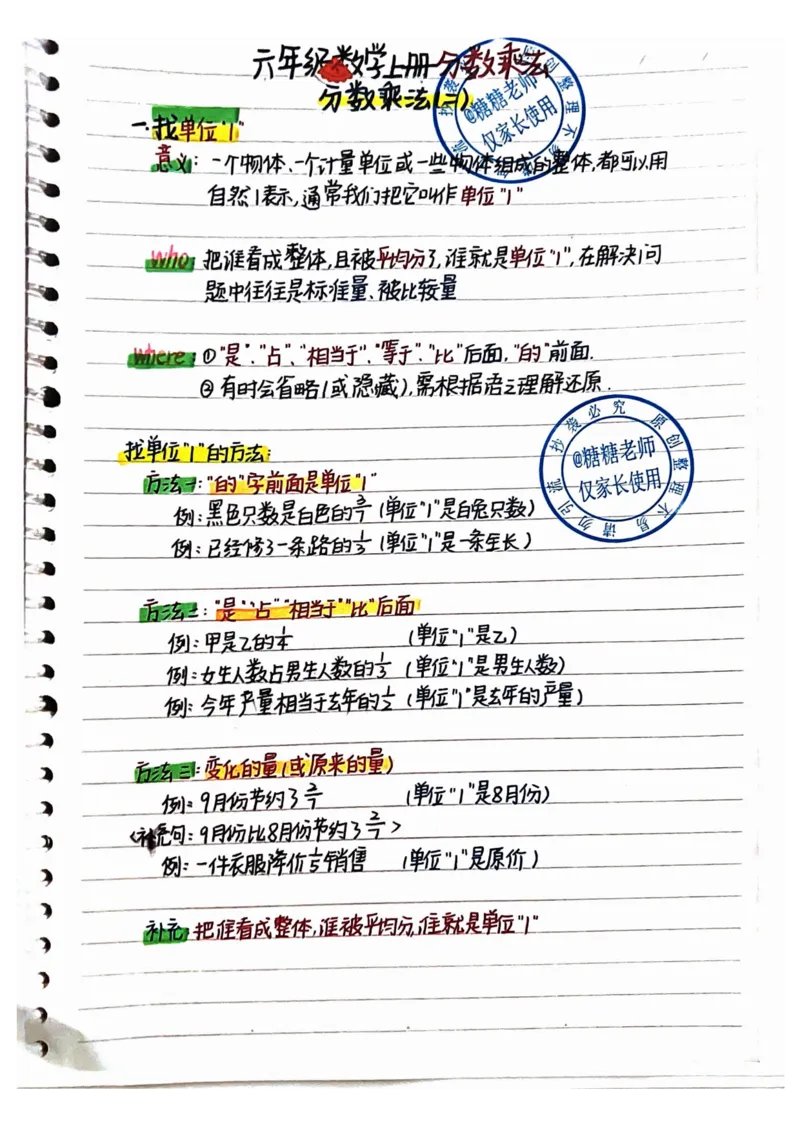 六年级数学上册分数乘法
分数乘法(二)
一.找单位"1"
意义: 一个物体、一个计量单位或一些物体组成的整体,都可以用
自然1表示,通常我们把它叫作单位"1"
Who: 把谁看成整体,且被平均分了,谁就是单位"1",在解决问
题中往往是标准量、被比较量
Where: ①"是"、"占"、"相当于"、"等于"、"比"后面,"的"前面.
②有时会省略(或隐藏),需根据语文理解还原.
找单位"1"的方法:
方法一:"的"字前面是单位"1"
例:黑色只数是白色的 (单位"1"是白兔只数)
例:已经修了一条路的1/3 (单位"1"是一条全长)
方法二:"是""占""相当于""比"后面
例:甲是乙的 (单位"1"是乙)
例:女生人数占男生人数的1/3 (单位"1"是男生人数)
例:今年产量相当于去年的1/2 (单位"1"是去年的产量)
方法三:变化的量(或原来的量)
例:9月份节约了2/7 (单位"1"是8月份)
<补充句:9月份比8月份节约了2/7>
例:一件衣服降价1/5销售 (单位"1"是原价)
补充:把谁看成整体,谁被平均分,谁就是单位"1"
@糖糖老师
仅家长使用
抄袭必究 原创整理不易 请勿引流
@糖糖老师
仅家长使用